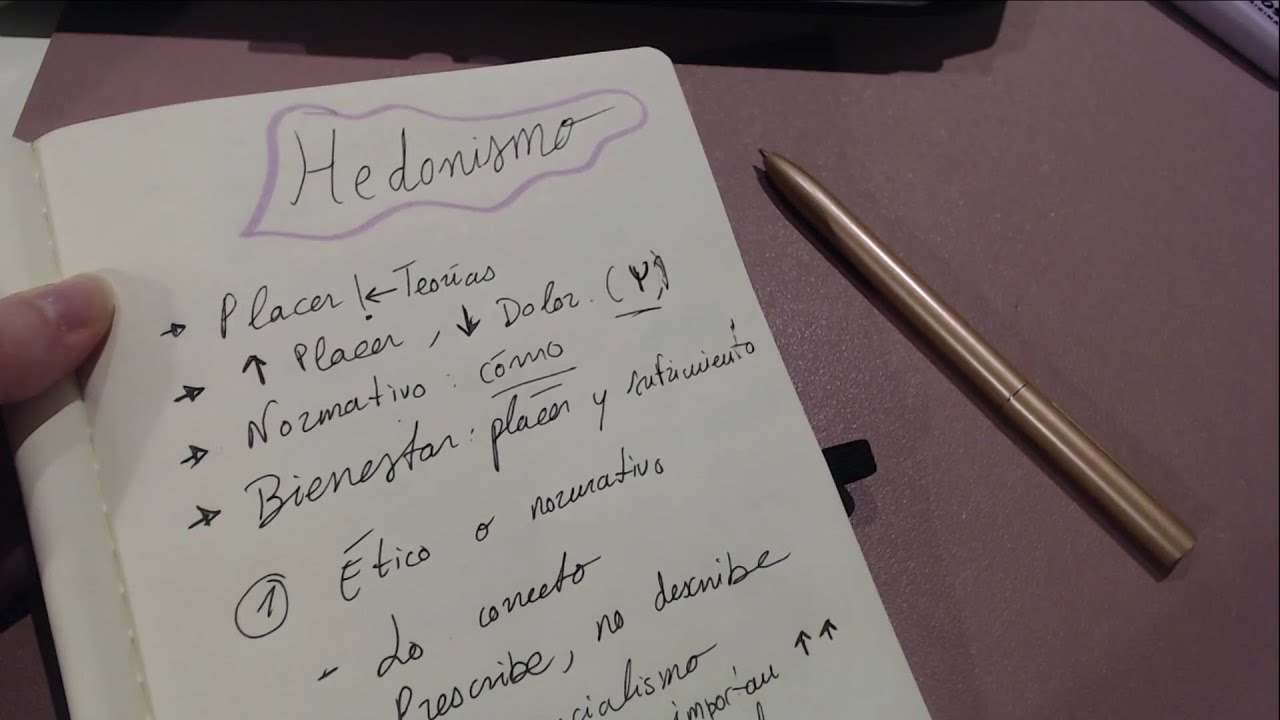 Hedonismo
→ Placer | ← Teorías
→ ↑ Placer, ↓ Dolor. (Ψ)
→ Normativo: cómo
→ Bienestar: placer y sufrimiento
① Ético o normativo
- Lo correcto
Prescribe, no describe
cialismo ↑↑
importan